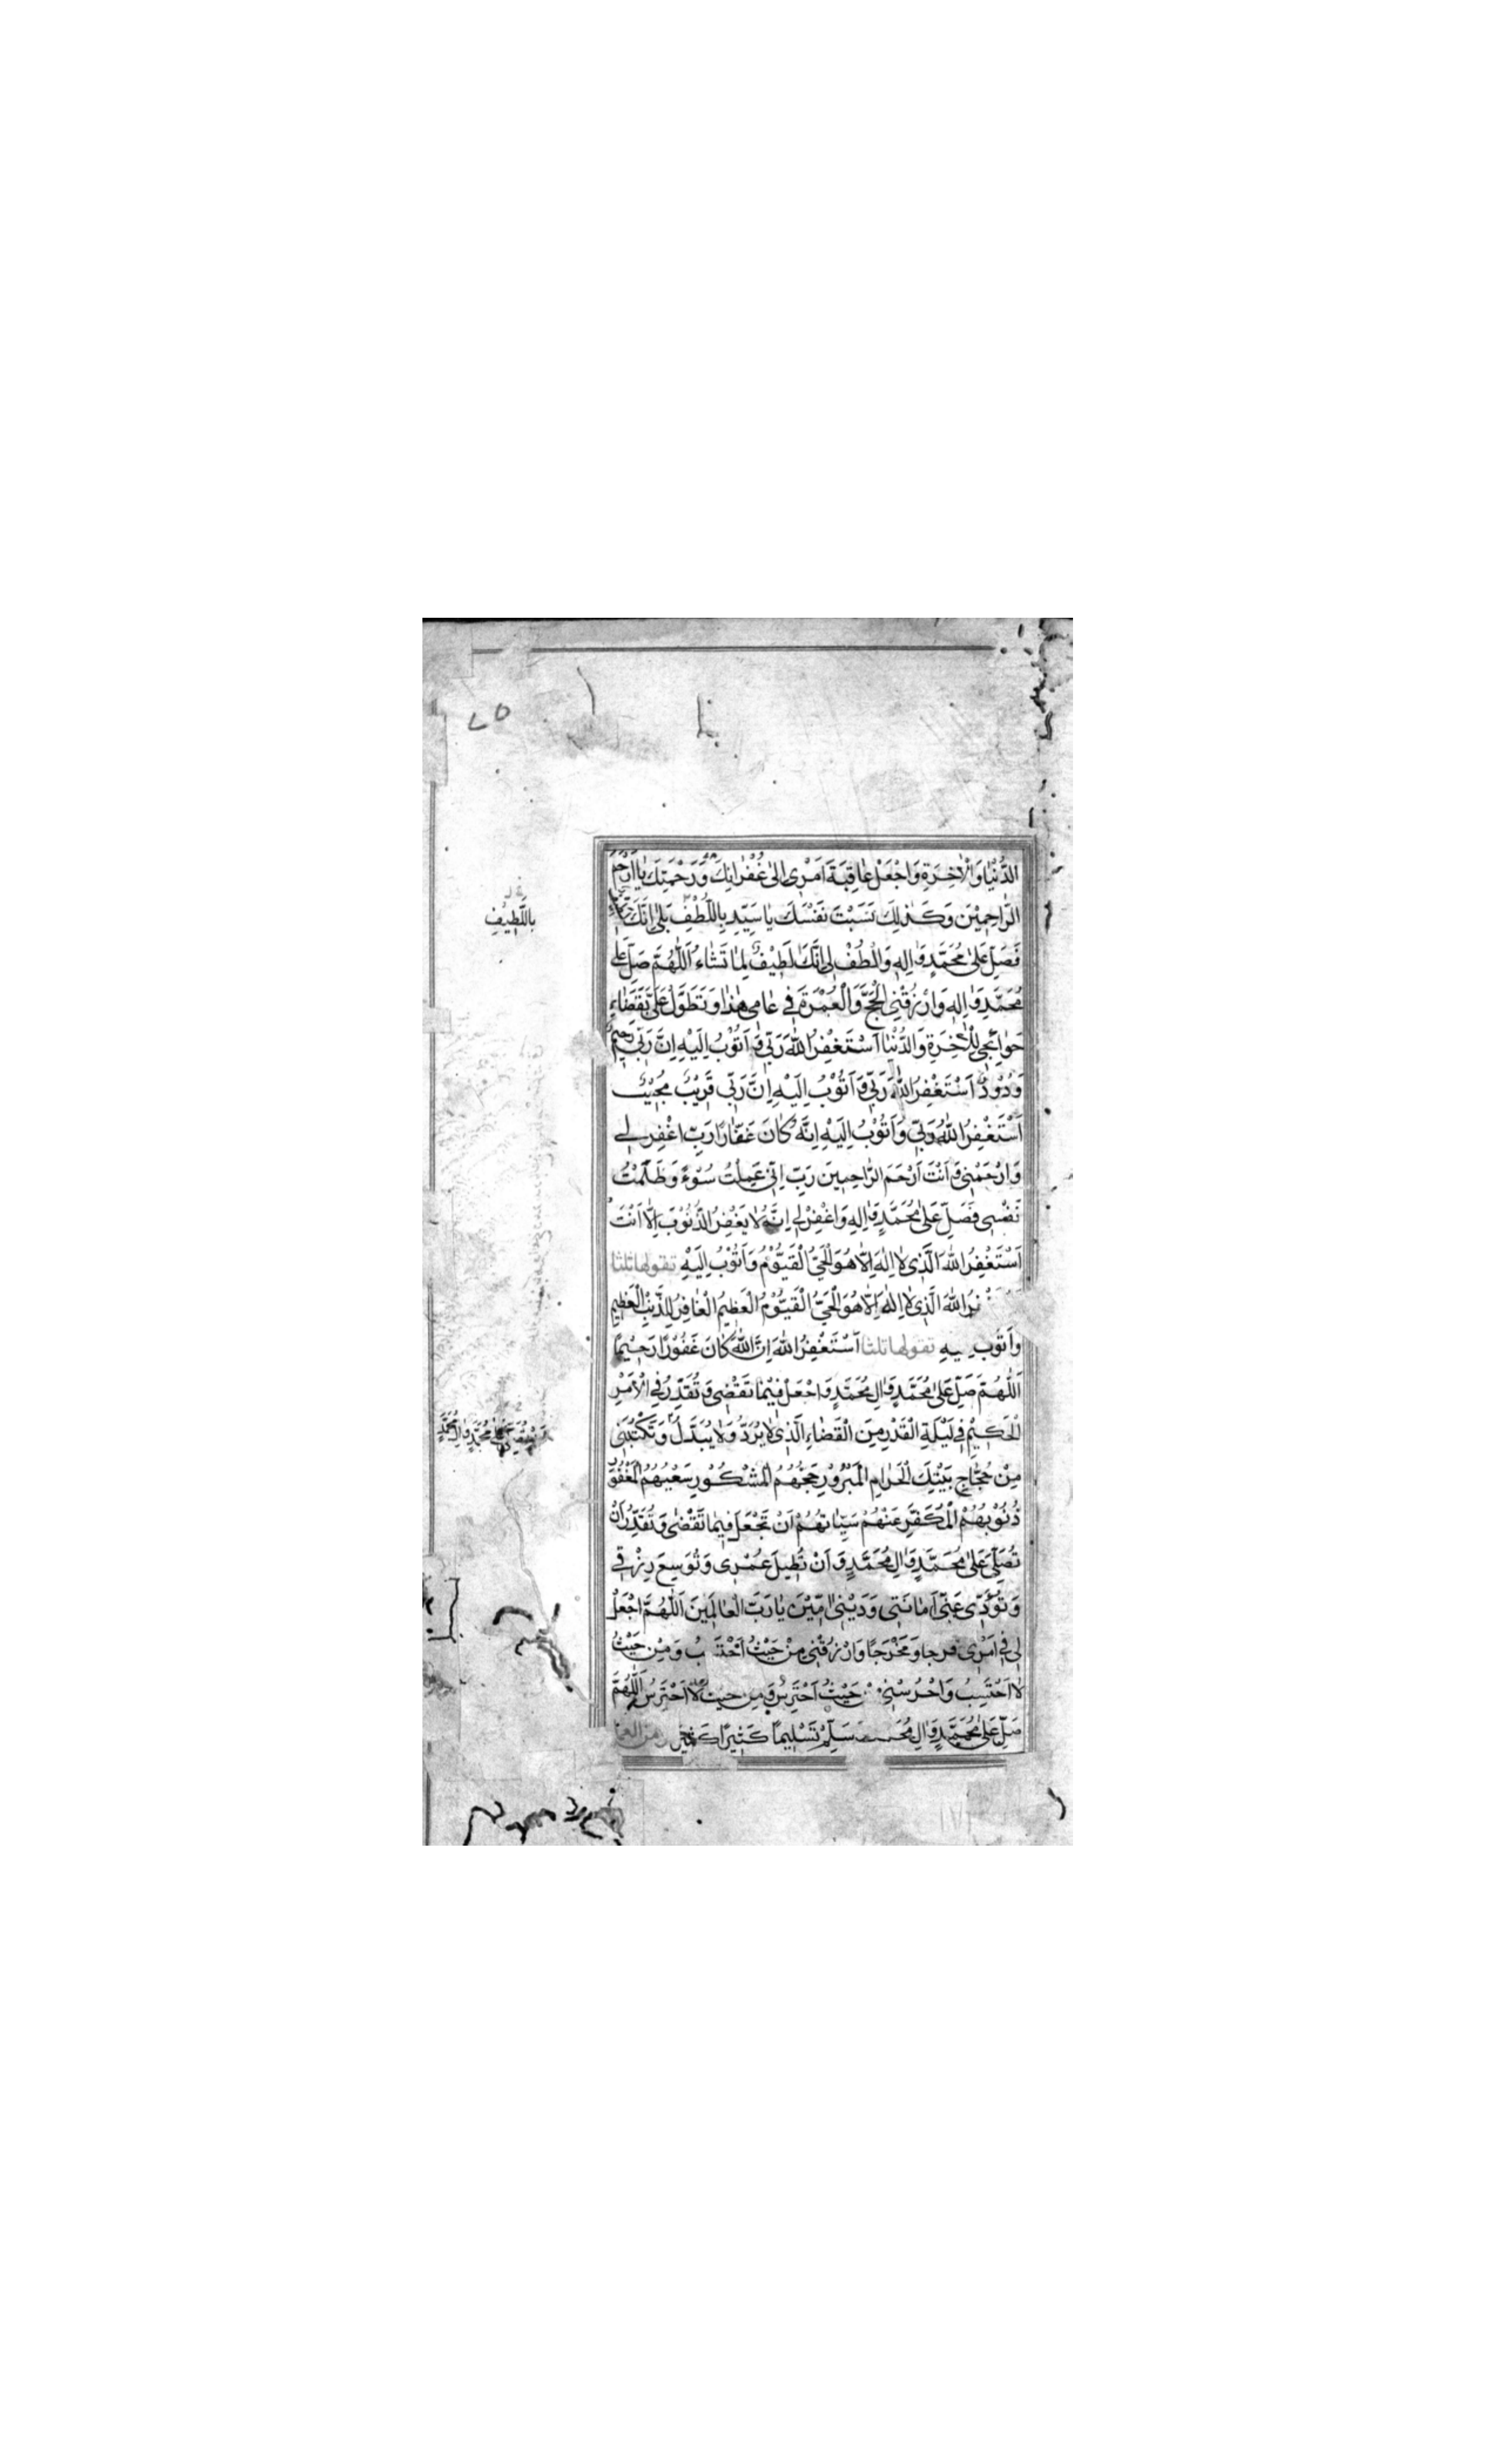 الدُّنْيَا وَالْاٰخِرَةِ وَاجْعَلْ عَاقِبَةَ اَمْرِى اِلىٰ غُفْرَانِكَ وَرَحْمَتِكَ يَا اَرْحَمَ
الرَّاحِمِيْنَ وَكَذٰلِكَ نَسَبْتَ نَفْسَكَ يَا سَيِّدِ بِاللُّطْفِ بَلىٰ اِنَّكَ
فَصَلِّ عَلىٰ مُحَمَّدٍ وَاٰلِهِ وَالْطُفْ لِى اِنَّكَ لَطِيْفٌ لِمَا تَشَاءُ اَللّٰهُمَّ صَلِّ عَلىٰ
مُحَمَّدٍ وَاٰلِهِ وَارْزُقْنِى الْحَجَّ وَالْعُمْرَةَ فِى عَامِى هٰذَا وَتَطَوَّلْ عَلَىَّ بِقَضَاءِ
حَوَائِجِى لِلْاٰخِرَةِ وَالدُّنْيَا اَسْتَغْفِرُ اللّٰهَ رَبِّى وَاَتُوْبُ اِلَيْهِ اِنَّ رَبِّى رَحِيْمٌ
وَدُوْدٌ اَسْتَغْفِرُ اللّٰهَ رَبِّى وَاَتُوْبُ اِلَيْهِ اِنَّ رَبِّى قَرِيْبٌ مُجِيْبٌ
اَسْتَغْفِرُ اللّٰهَ رَبِّى وَاَتُوْبُ اِلَيْهِ اِنَّهُ كَانَ غَفَّارًا رَبِّ اغْفِرْ لِى
وَارْحَمْنِى وَاَنْتَ اَرْحَمُ الرَّاحِمِينَ رَبِّ اِنِّى عَمِلْتُ سُوْءً وَظَلَمْتُ
نَفْسِى فَصَلِّ عَلىٰ مُحَمَّدٍ وَاٰلِهِ وَاغْفِرْ لِى اِنَّهُ لَا يَغْفِرُ الذُّنُوْبَ اِلَّا اَنْتَ
اَسْتَغْفِرُ اللّٰهَ الَّذِى لَا اِلٰهَ اِلَّا هُوَ الْحَىُّ الْقَيُّوْمُ وَاَتُوْبُ اِلَيْهِ تقولها ثلثا
اللّٰهَ الَّذِى لَا اِلٰهَ اِلَّا هُوَ الْحَىُّ الْقَيُّوْمُ الْعَظِيمُ الْغَافِرُ لِلذَّنْبِ الْعَظِيمِ
وَاَتُوْبُ تقولها ثلثا اَسْتَغْفِرُ اللّٰهَ اِنَّ اللّٰهَ كَانَ غَفُوْرًا رَحِيْمًا
اَللّٰهُمَّ صَلِّ عَلىٰ مُحَمَّدٍ وَاٰلِ مُحَمَّدٍ وَاجْعَلْ فِيْمَا تَقْضِى وَتُقَدِّرُ فِى الْاَمْرِ
الْحَكِيْمِ فِى لَيْلَةِ الْقَدْرِ مِنَ الْقَضَاءِ الَّذِى لَا يُرَدُّ وَلَا يُبَدَّلُ وَتَكْتُبَنِى
مِنْ حُجَّاجِ بَيْتِكَ الْحَرَامِ الْمَبْرُوْرِ حَجُّهُمُ الْمَشْكُوْرِ سَعْيُهُمُ الْمَغْفُوْرِ
ذُنُوْبُهُمُ الْمُكَفَّرِ عَنْهُمْ سَيِّاٰتُهُمْ اَنْ تَجْعَلَ فِيمَا تَقْضِى وَتُقَدِّرُ اَنْ
تُصَلِّىَ عَلىٰ مُحَمَّدٍ وَاٰلِ مُحَمَّدٍ وَاَنْ تُطِيلَ عُمْرِى وَتُوَسِّعَ رِزْقِى
وَتُؤَدِّىَ عَنِّى اَمَانَتِى وَدَيْنِى اٰمِّيْنَ يَا رَبَّ الْعَالَمِينَ اَللّٰهُمَّ اجْعَلْ
لِى فِى اَمْرِى فرجا وَمَخْرَجًا وَارْزُقْنِى مِنْ حَيْثُ وَمِنْ حَيْثُ
لَا اَحْتَسِبُ وَاحْرُسْنِى حَيْثُ اَحْتَرِسُ وَمِن حيث لَا اَحْتَرِسُ اَللّٰهُمَّ
صَلِّ عَلىٰ مُحَمَّدٍ وَاٰلِ سَلِّمْ تَسْلِيمًا كَثِيْرًا
بِاللَّطِيْفِ